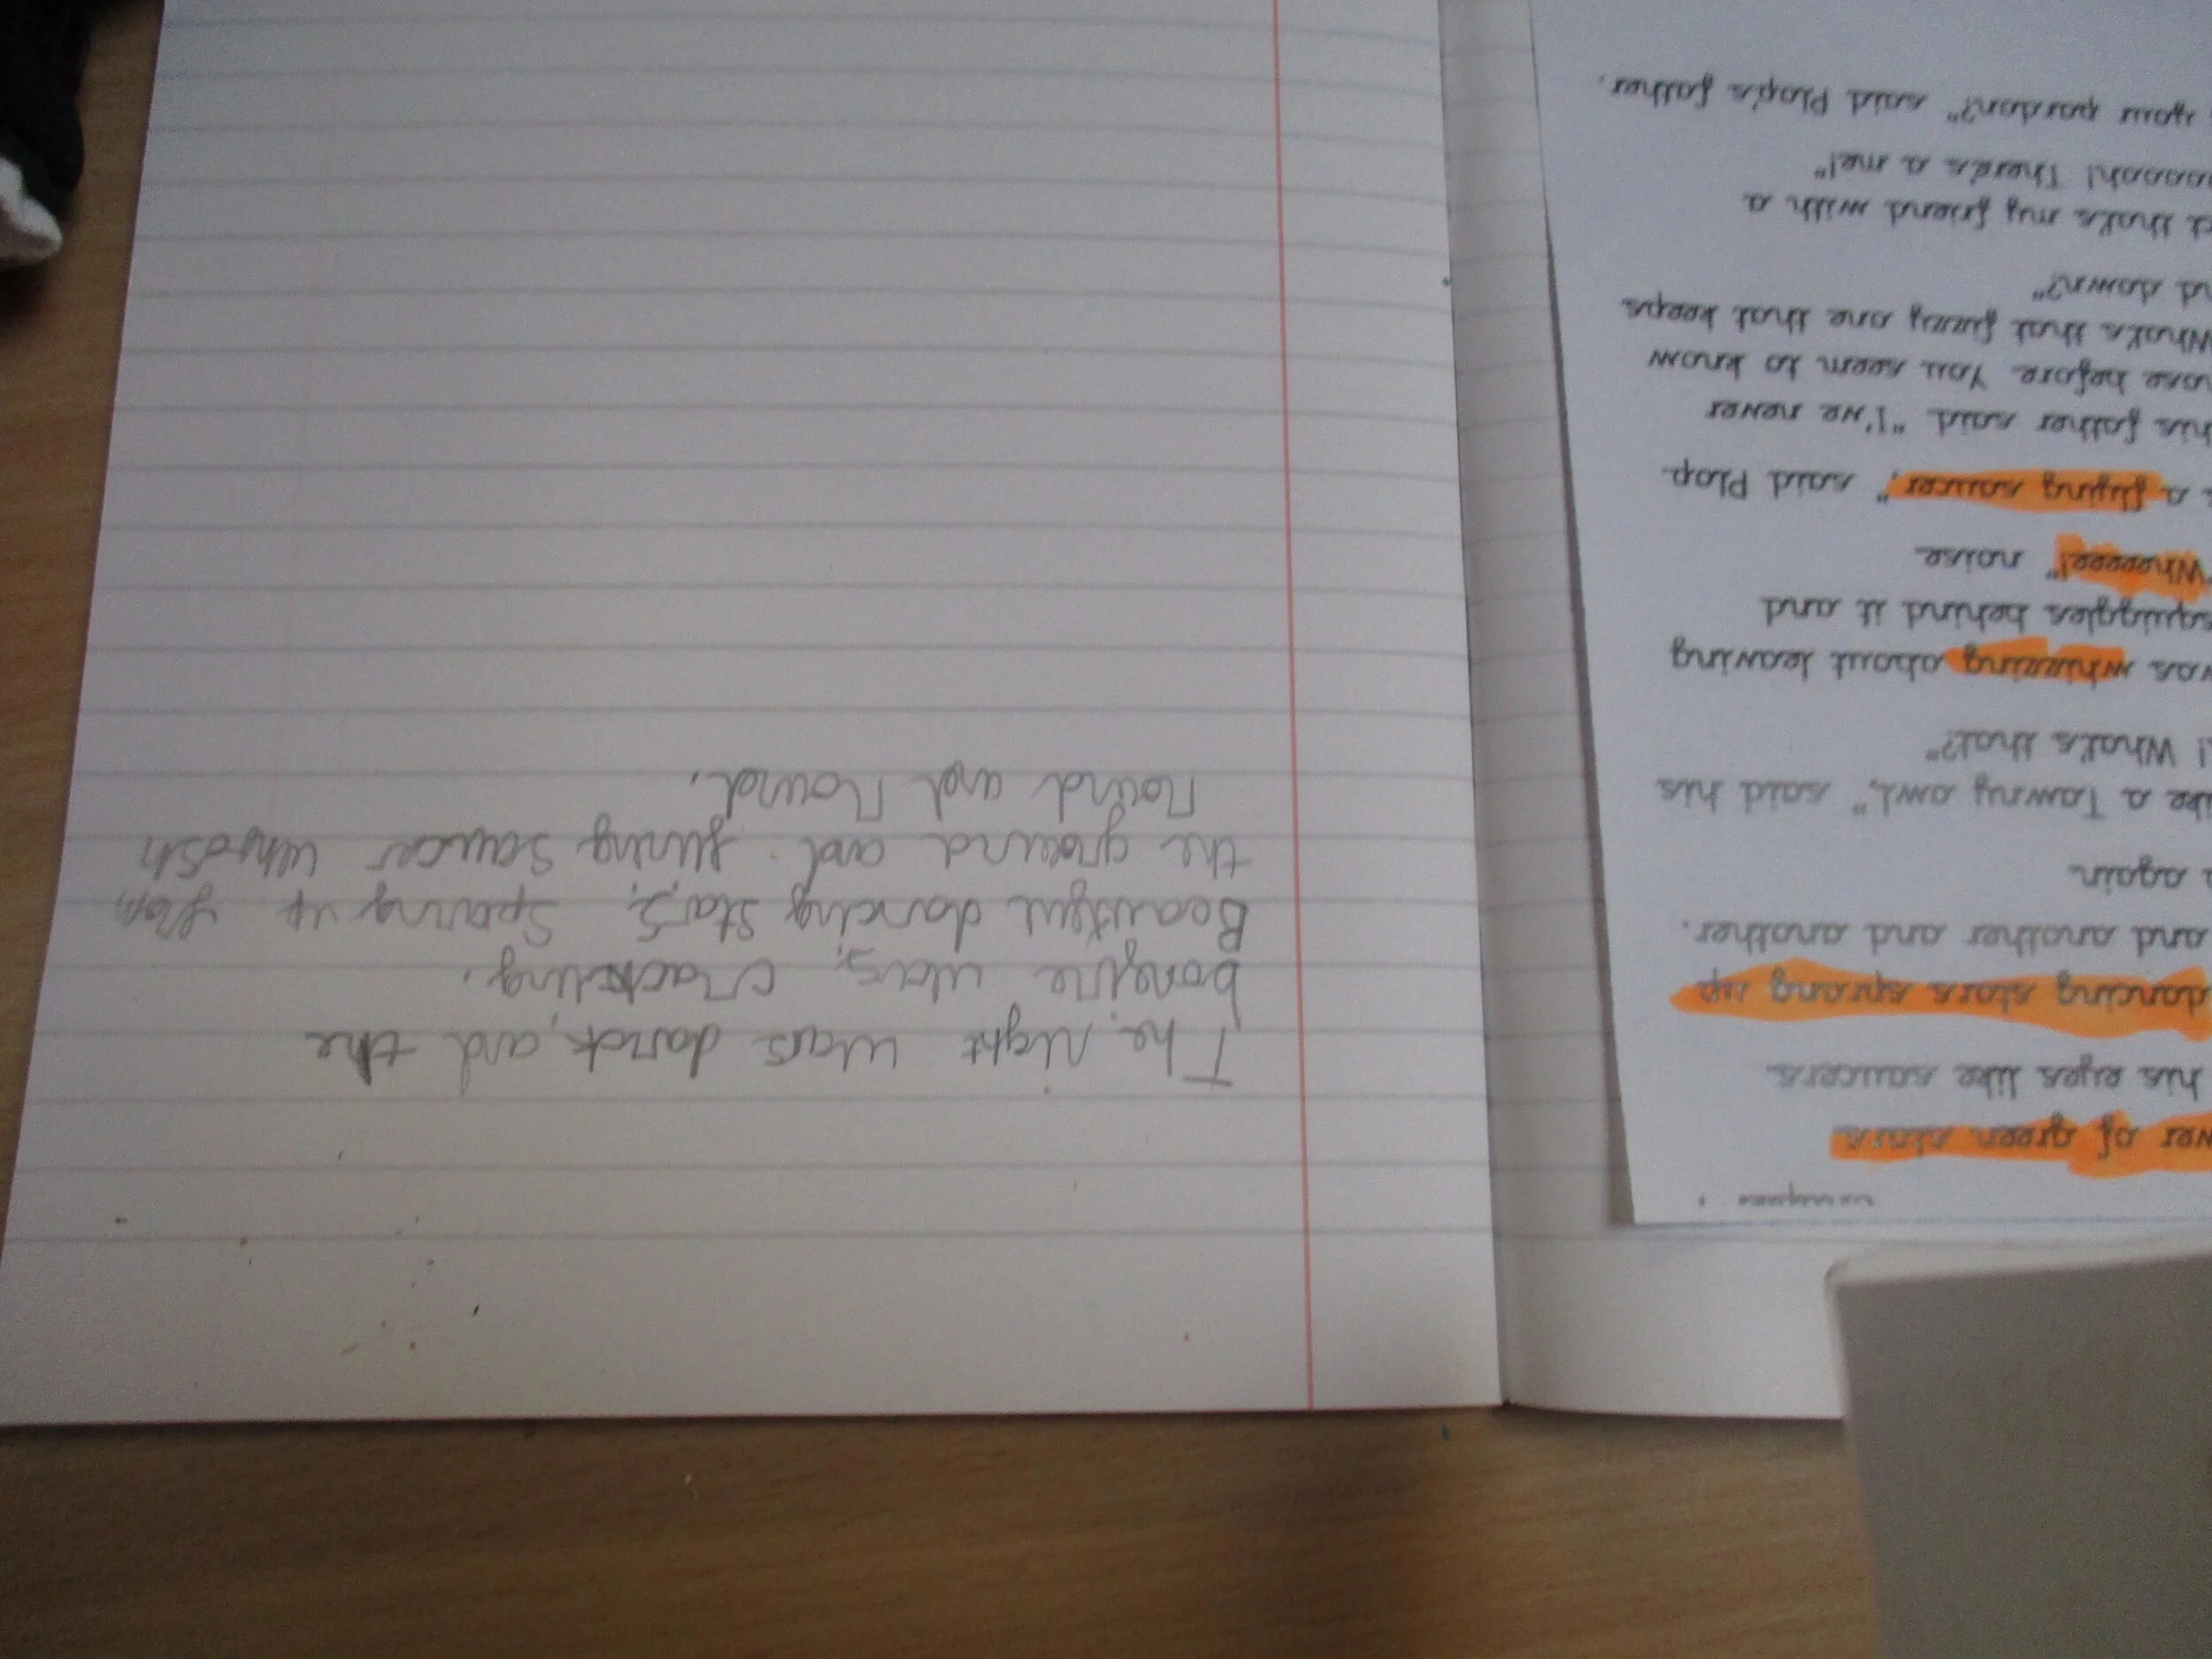 of green stars
his eyes like saucers.
dancing stars sprang up
and another and another.
again.
a Tawny owl," said his
! What's that?"
was whizzing about leaving
squiggles behind it and
"Wheeeee!" noise.
a flying saucer," said Plop.
his father said. "I've never
before. You seem to know
What's that fizzy one that keeps
down?"
that's my friend with a
There's a me!"
your pardon?" said Plop's father.
The Night wars darck, and the
bonfire wars, crackling.
Beautful dancing stars, sparing up from
the graend and fliing saucer whoosh
round and round.